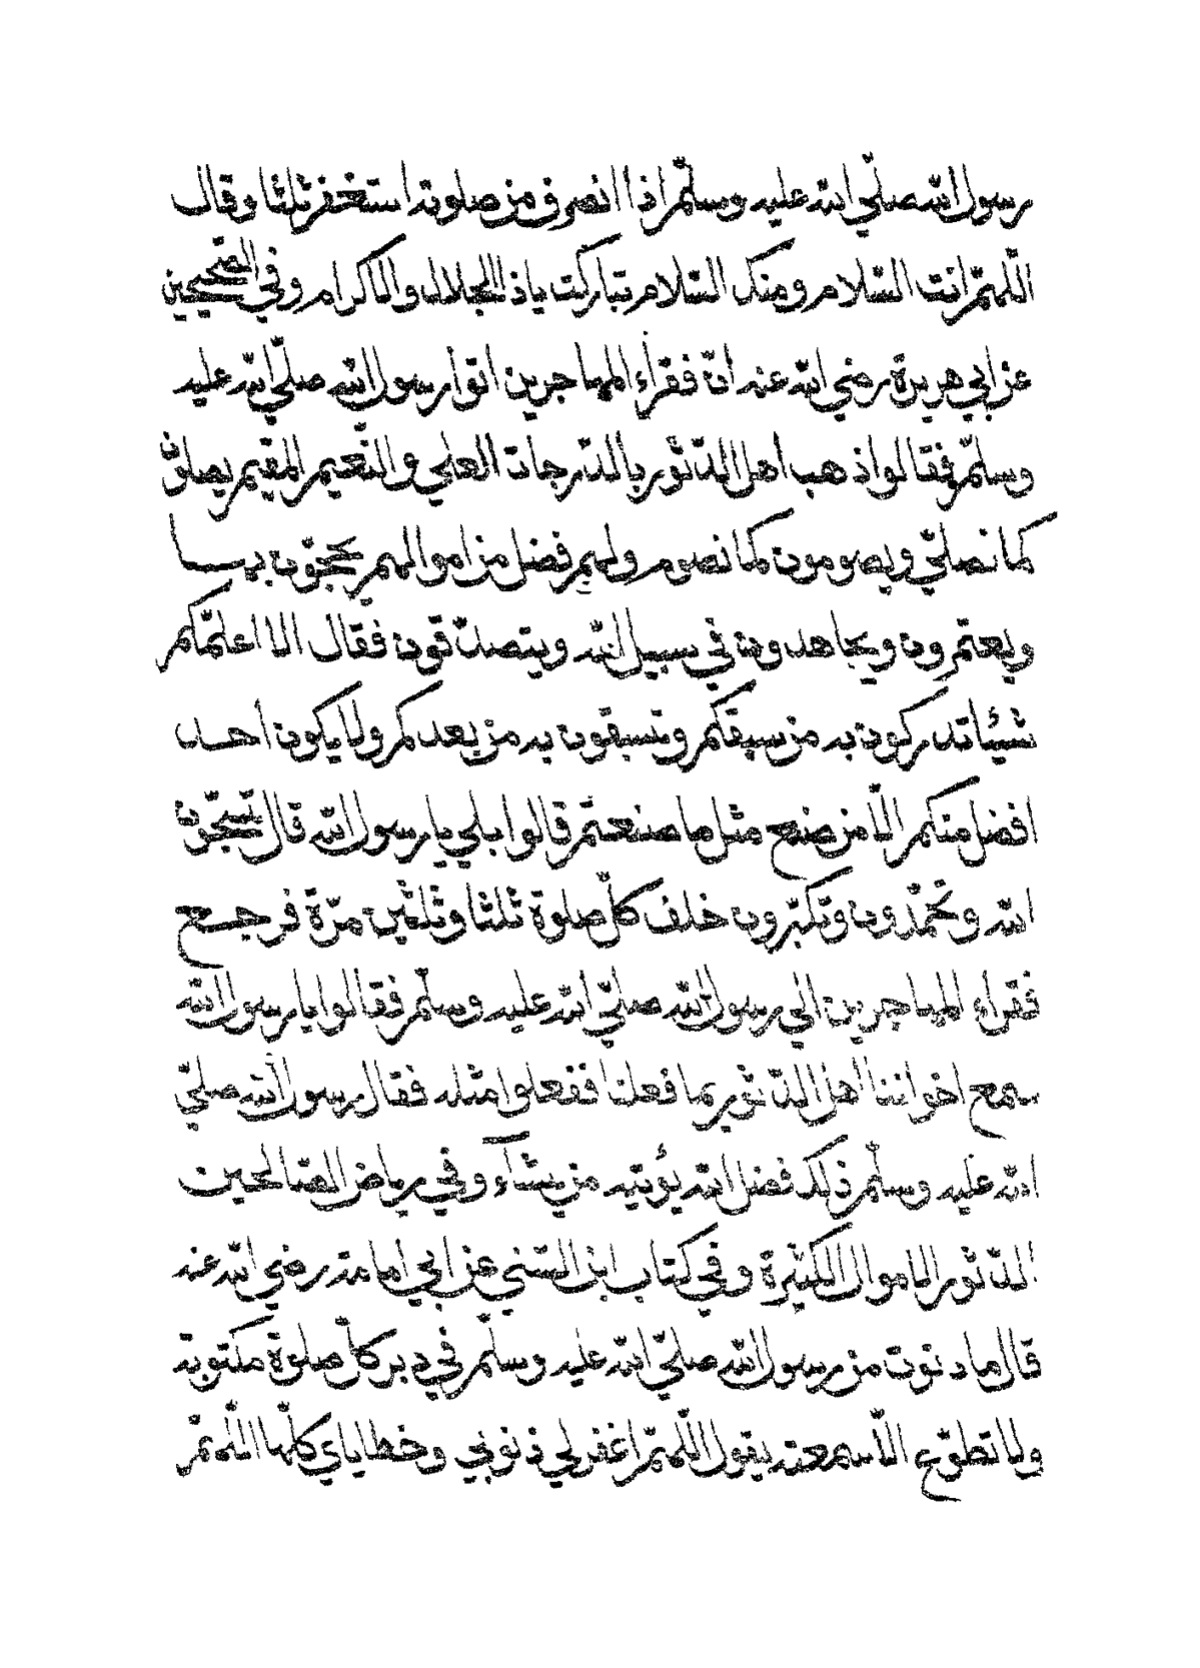 رسول الله صلّي الله عليه وسلّم اذا انصرف من صلوته استغفر ثلثا وقال
اللّهمّ انت السّلام ومنك السّلام تباركت ياذا الجلال والاكرام وفي الصّحيحين
عن ابي هريرة رضي الله عنه انّ فقرآء المهاجرين اتوا رسول الله صلّي الله عليه
وسلّم فقالوا ذهب اهل الدّثور بالدّرجات العلي والنّعيم المقيم يصلّون
كما نصلّي ويصومون كما نصوم ولهم فضل من اموالهم يحجّون بها
ويعتمرون ويجاهدون في سبيل الله ويتصدّقون فقال الا اعلّمكم
شيئا تدركون به من سبقكم وتسبقون به من بعدكم ولا يكون احد
افضل منكم الّا من صنع مثل ما صنعتم قالوا بلي يا رسول الله قال تسبّحون
الله وتحمّدون وتكبّرون خلف كلّ صلوة ثلثا وثلثين مرّة فرجع
فقراء المهاجرين الي رسول الله صلّي الله عليه وسلّم فقالوا يا رسول الله
سمع اخواننا اهل الدّثور بما فعلنا ففعلوا مثله فقال رسول الله صلّي
الله عليه وسلّم ذلك فضل الله يؤتيه من يشآء وفي رياض الصّالحين
الدّثور الاموال الكثيرة وفي كتاب ابن السّني عن ابي امامة رضي الله عنه
قال ما دنوت من رسول الله صلّي الله عليه وسلّم في دبر كلّ صلوة مكتوبة
ولا تطوّع الّا سمعته يقول اللّهمّ اغفر لي ذنوبي وخطاياي كلّها اللّهمّ